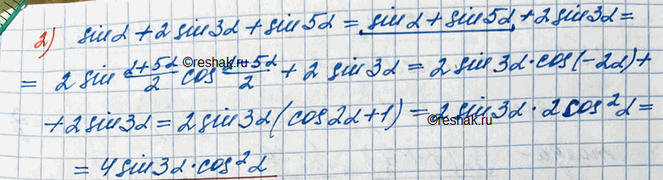 2) sinα + 2 sin3α + sin5α = sinα + sin5α + 2 sin3α =
= 2 sin (α+5α)/2 cos (α-5α)/2 + 2 sin3α = 2 sin3α · cos(-2α) +
+ 2 sin3α = 2 sin3α (cos2α + 1) = 2 sin3α · 2 cos²α =
= 4 sin3α · cos²α
©reshak.ru
©reshak.ru